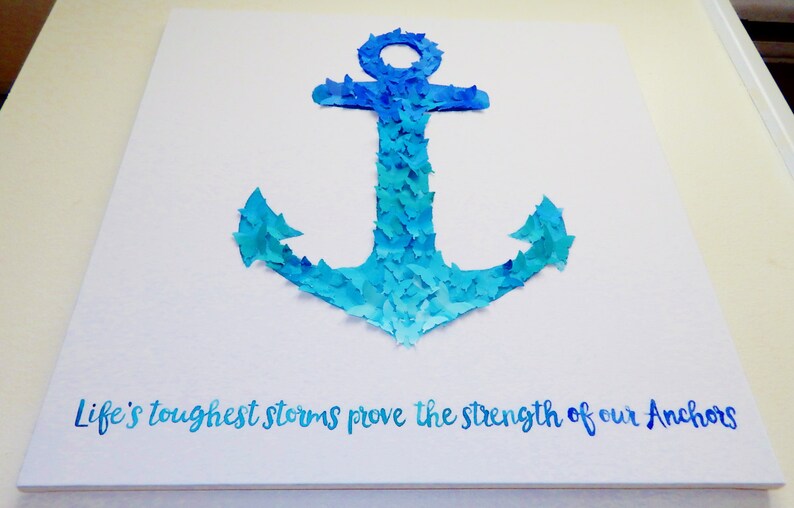 Life's toughest storms prove the strength of our Anchors